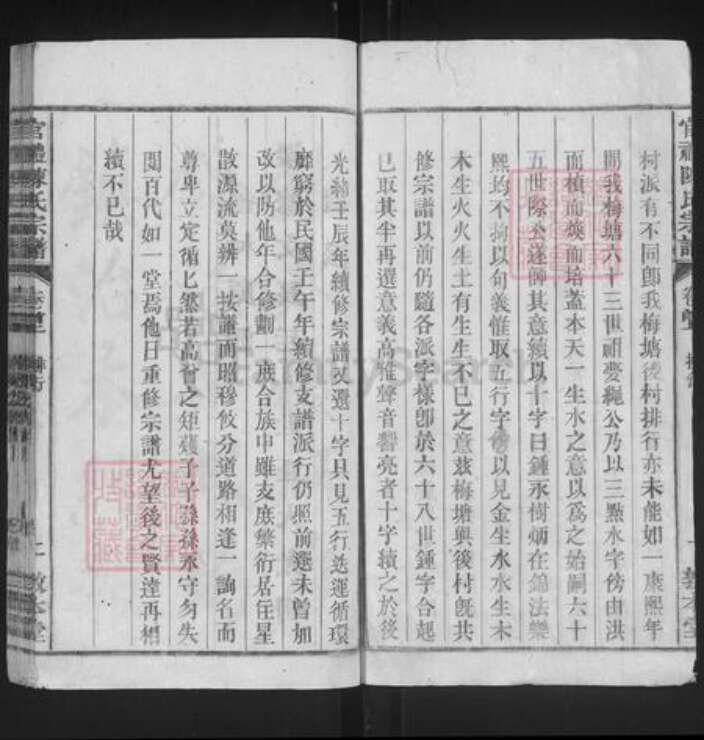 村派有不同卽我梅塘後村排行亦未能如一康熙年
間我梅塘六十三世祖夢繩公乃以三點水字傍由洪
而楨而煥而培蓋本天一生水之意以爲之始嗣六十
五世際公遂師其意續以十字曰鍾永樹炳在錦法樂
熙均不拘以句義惟取五行字以見金生水水生木
木生火火生土有生生不已之意茲梅塘與後村旣共
修宗譜以前仍隨各派字樣卽於六十八世鍾字合起
已取其半再選意義高雅聲音響亮者十字續之於後
光緒壬辰年續修宗譜又選十字具見五行迭運循環
靡窮於民國壬午年續修支譜派行仍照前選未曾加
改以防他年合修劃一庶合族中雖支庶繁衍居住星
散源流莫辨一按譜而昭穆攸分道路相逢一詢名而
尊卑立定循匕然若高曾之矩矱子子孫孫永守勿失
閱百代如一堂焉他日重修宗譜尤望後之賢達再相
續不已哉
官禮陳氏宗譜
卷首
排行
敦本堂